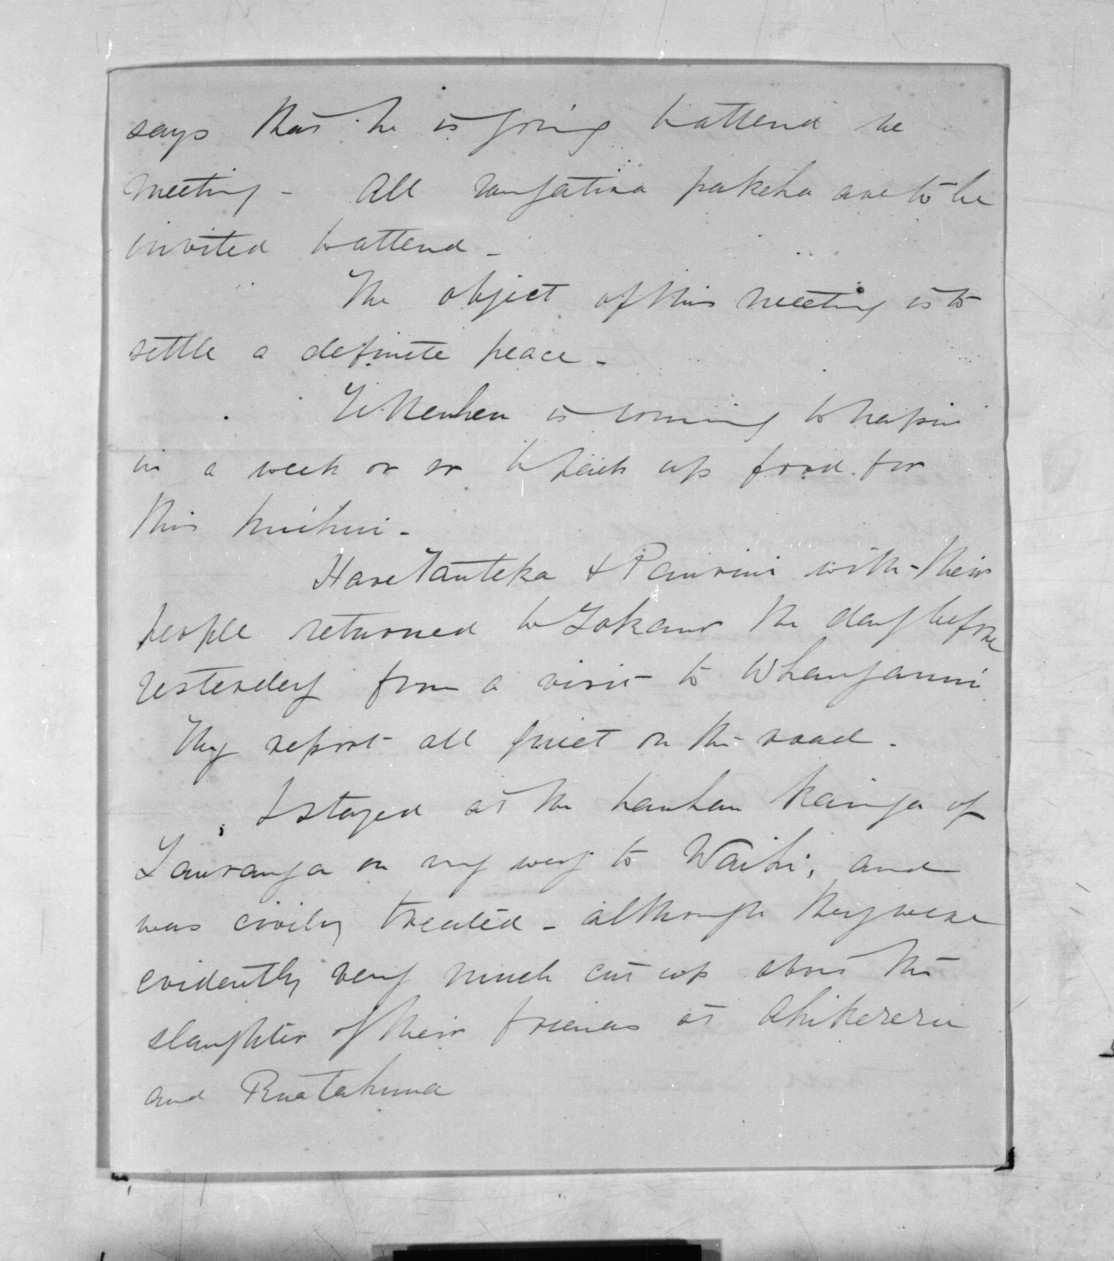 says that he is going to attend the
meeting - All rangatira pakeha are to be
invited to attend -
The object of this meeting is to
settle a definite peace -
Te Heuheu is coming to Napier
in a week or so to pick up food for
this huihui -
Hare Tauteka & Paurini with their
people returned to Tokanu the day before
yesterday from a visit to Whanganui
They report all quiet on the road .
I stayed at the hauhau kainga of
Tauranga on my way to Waihi, and
was civilly treated - although they were
evidently very much cut up about the
slaughter of their friends at Ahikereru
and Ruatahuna